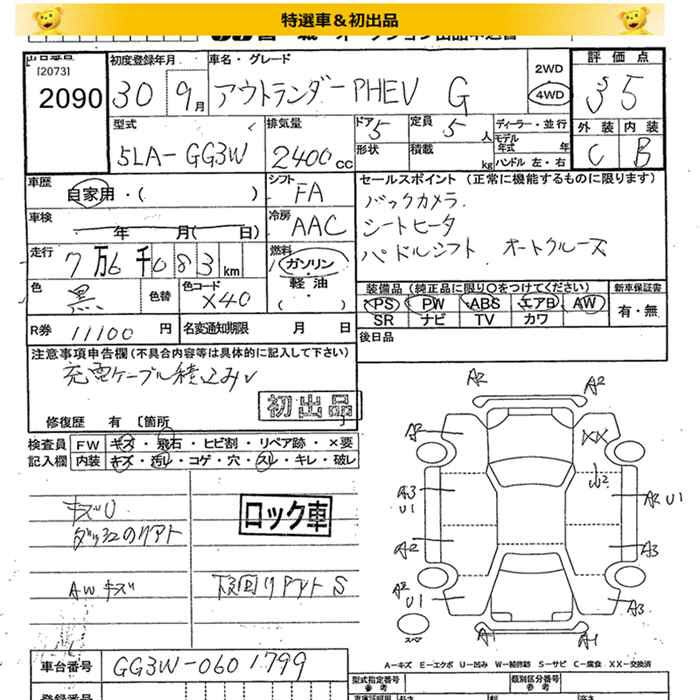 特選車＆初出品
[2073]
2090
初度登録年月
30 9月
車名・グレード
アウトランダーPHEV G
2WD
4WD
評価点
3 5
型式
5LA-GG3W
排気量
2400cc
ドア 5
定員 5人
形状
積載 kg
ディーラー・並行
モデル年式 年
ハンドル 左・右
外装 内装
C B
車歴
自家用・( )
シフト
FA
セールスポイント (正常に機能するものに限ります)
バックカメラ
シートヒータ
パドルシフト オートクルーズ
車検
年 月( 日)
冷房
AAC
走行
7万6千083km
燃料
ガソリン
軽油
・
( )
色
黒
色替
色コード
X40
装備品 (純正品に限り○をつけてください)
PS PW ABS エアB AW
SR ナビ TV カワ
新車保証書
有・無
R券 11100円
名変通知期限 月 日
後日品
注意事項申告欄 (不具合内容等は具体的に記入して下さい)
充電ケーブル積込み
初出品
修復歴 有 [箇所 ]
検査員記入欄
FW キズ・飛石・ヒビ割・リペア跡・×要
内装 キズ・汚れ・コゲ・穴・スレ・キレ・破レ
キズU
ロック車
AWキズ
下回りサビト S
A2
A2
A2
XX
U2
A3
U1
A2 U1
A2
A3
A2
U1
A3
スペア
A1
A1
A-キズ E-エクボ U-凹み W-補修跡 S-サビ C-腐食 XX-交換済
車台番号 GG3W-0601799
型式指定番号
参考
類別区分番号
参考